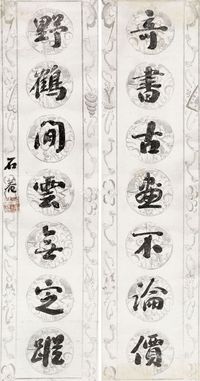 奇書古畫不論價
野鶴閒雲無定蹤
石菴